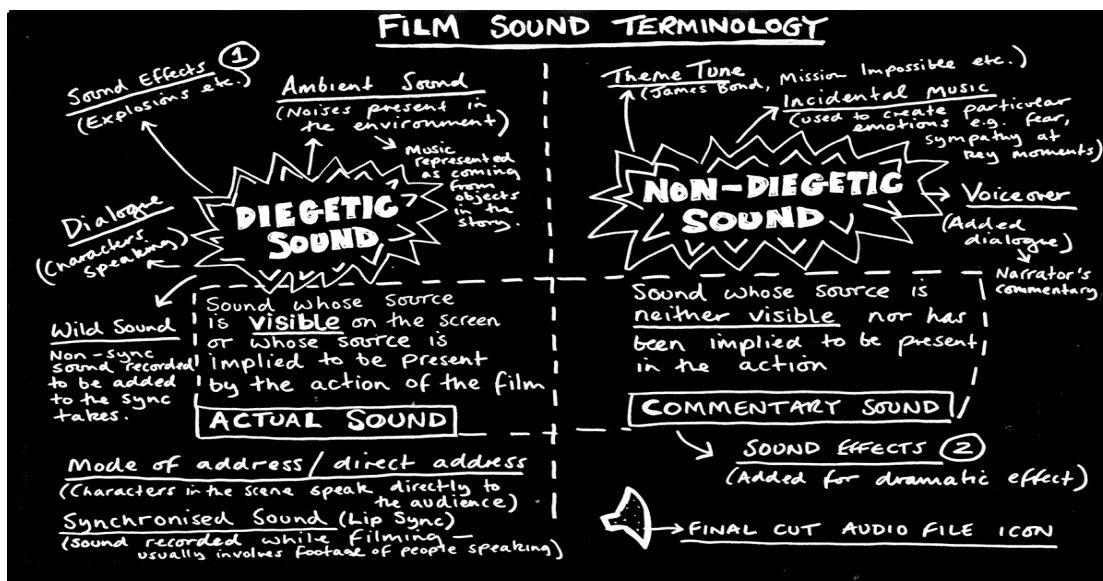 FILM SOUND TERMINOLOGY
Sound Effects 1
(Explosions etc.)
Ambient Sound
(Noises present in
the environment)
Music
represented
as coming
from
objects
in the
story.
DIEGETIC
SOUND
Dialogue
(Characters
speaking)
Wild Sound
Non-sync
sound recorded
to be added
to the sync
takes.
Sound whose source
is visible on the screen
or whose source is
implied to be present
by the action of the film
ACTUAL SOUND
Mode of address/direct address
(Characters in the scene speak directly to
the audience)
Synchronised Sound (Lip Sync)
(Sound recorded while filming –
usually involves footage of people speaking)
Theme Tune
(James Bond, Mission Impossible etc.)
Incidental Music
(used to create particular
emotions e.g. fear,
sympathy at
key moments)
NON-DIEGETIC
SOUND
Voiceover
(Added
dialogue)
Narrator's
commentary
Sound whose source is
neither visible nor has
been implied to be present
in the action
COMMENTARY SOUND
SOUND EFFECTS 2
(Added for dramatic effect)
FINAL CUT AUDIO FILE ICON